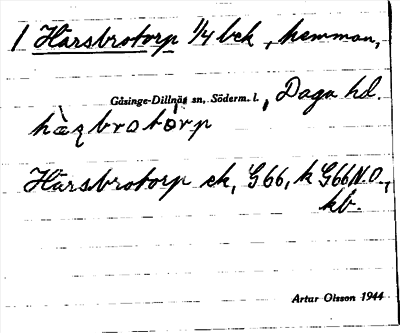 1 Harsbrotorp 1/4 bek, hemman,
Gåsinge-Dillnäs sn, Söderm. l., Daga hd.
Harsbrotorp ek, G66, k G66 N.O.,
kb.
Artur Olsson 1944